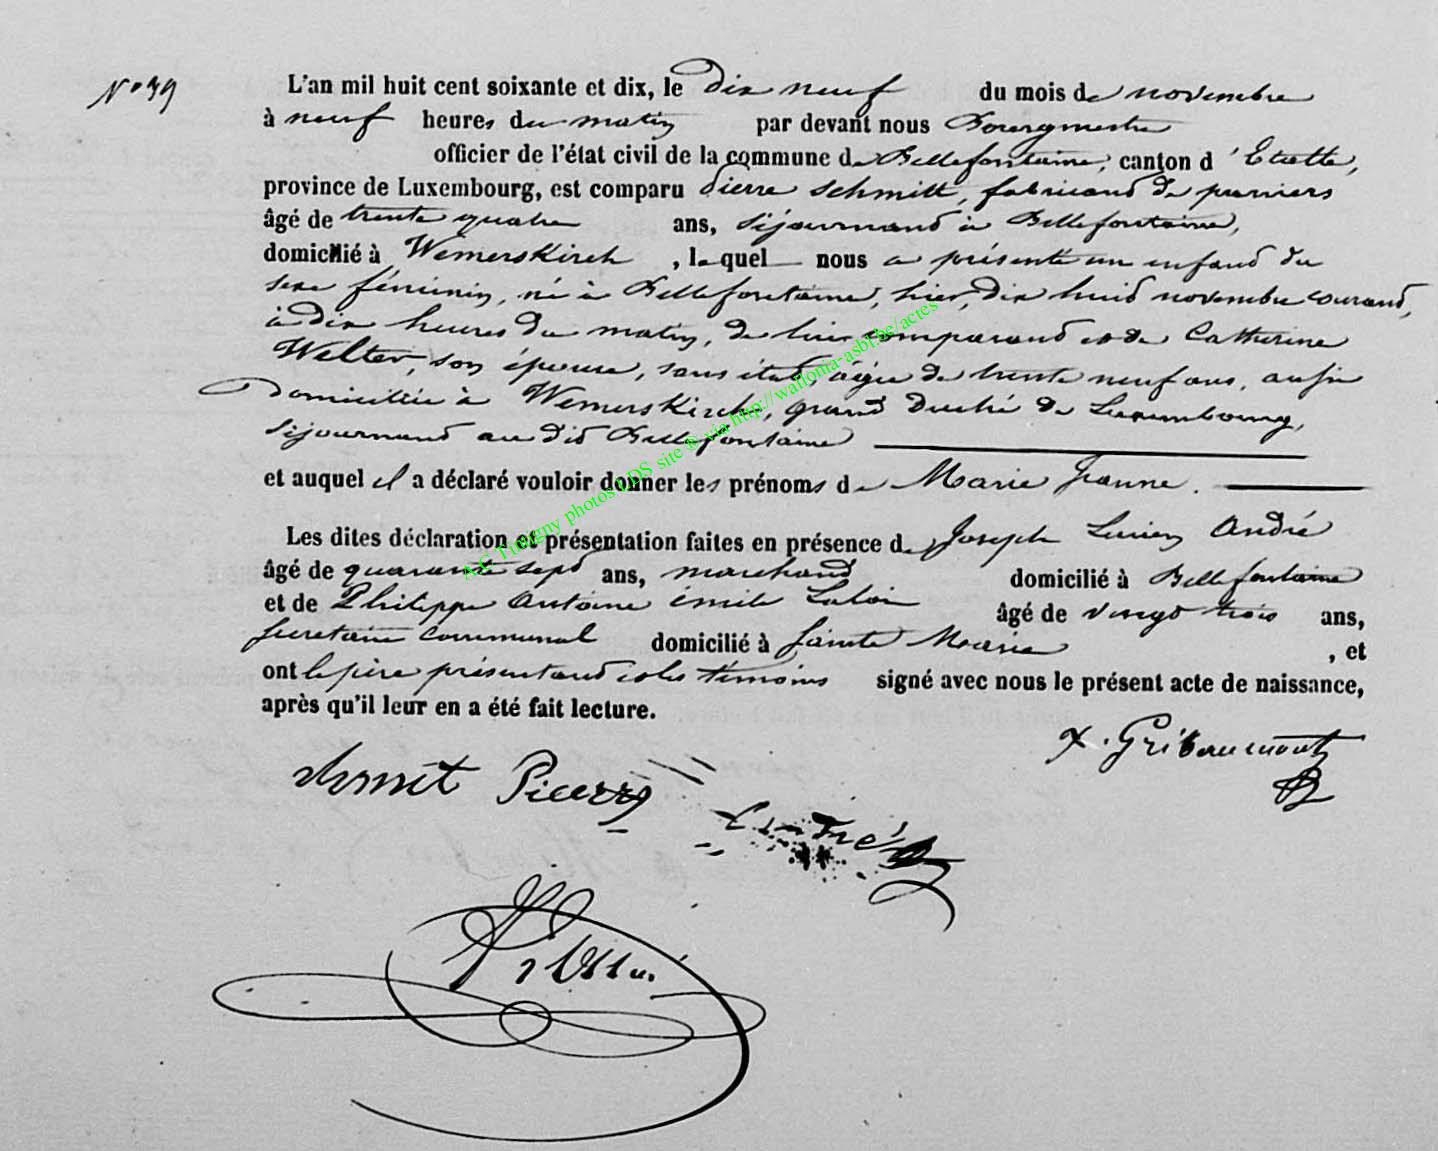 N° 39
L'an mil huit cent soixante et dix, le dix neuf du mois de novembre
à neuf heures du matin par devant nous Bourgmestre
officier de l'état civil de la commune de Bellefontaine, canton d'Etalle,
province de Luxembourg, est comparu Pierre Schmitt, fabricand de paniers
âgé de trente quatre ans, séjournand à Bellefontaine,
domicilié à Wemerskirch, lequel nous a présenté un enfand du
sexe féminin, né à Bellefontaine, hier, dix huid novembre courand,
à dix heures du matin, de lui comparand et de Catherine
Welter, son épouse, sans état, âgée de trente neuf ans, aussi
domiciliée à Wemerskirch, grand duché de Luxembourg,
séjournand au did Bellefontaine
et auquel il a déclaré vouloir donner les prénoms de Marie Jeanne.
Les dites déclaration et présentation faites en présence de Joseph Lucien André
âgé de quarante sept ans, marchand domicilié à Bellefontaine
et de Philippe Antoine émile âgé de vingt trois ans,
secretaire communal domicilié à Sainte Marie, et
ont le père présentand et les témoins signé avec nous le présent acte de naissance,
après qu'il leur en a été fait lecture.
X. Gribaumont
Schmit Pierre
André
A.C Tintigny photos LDS site ® via http://wallonia-asbl.be/actes